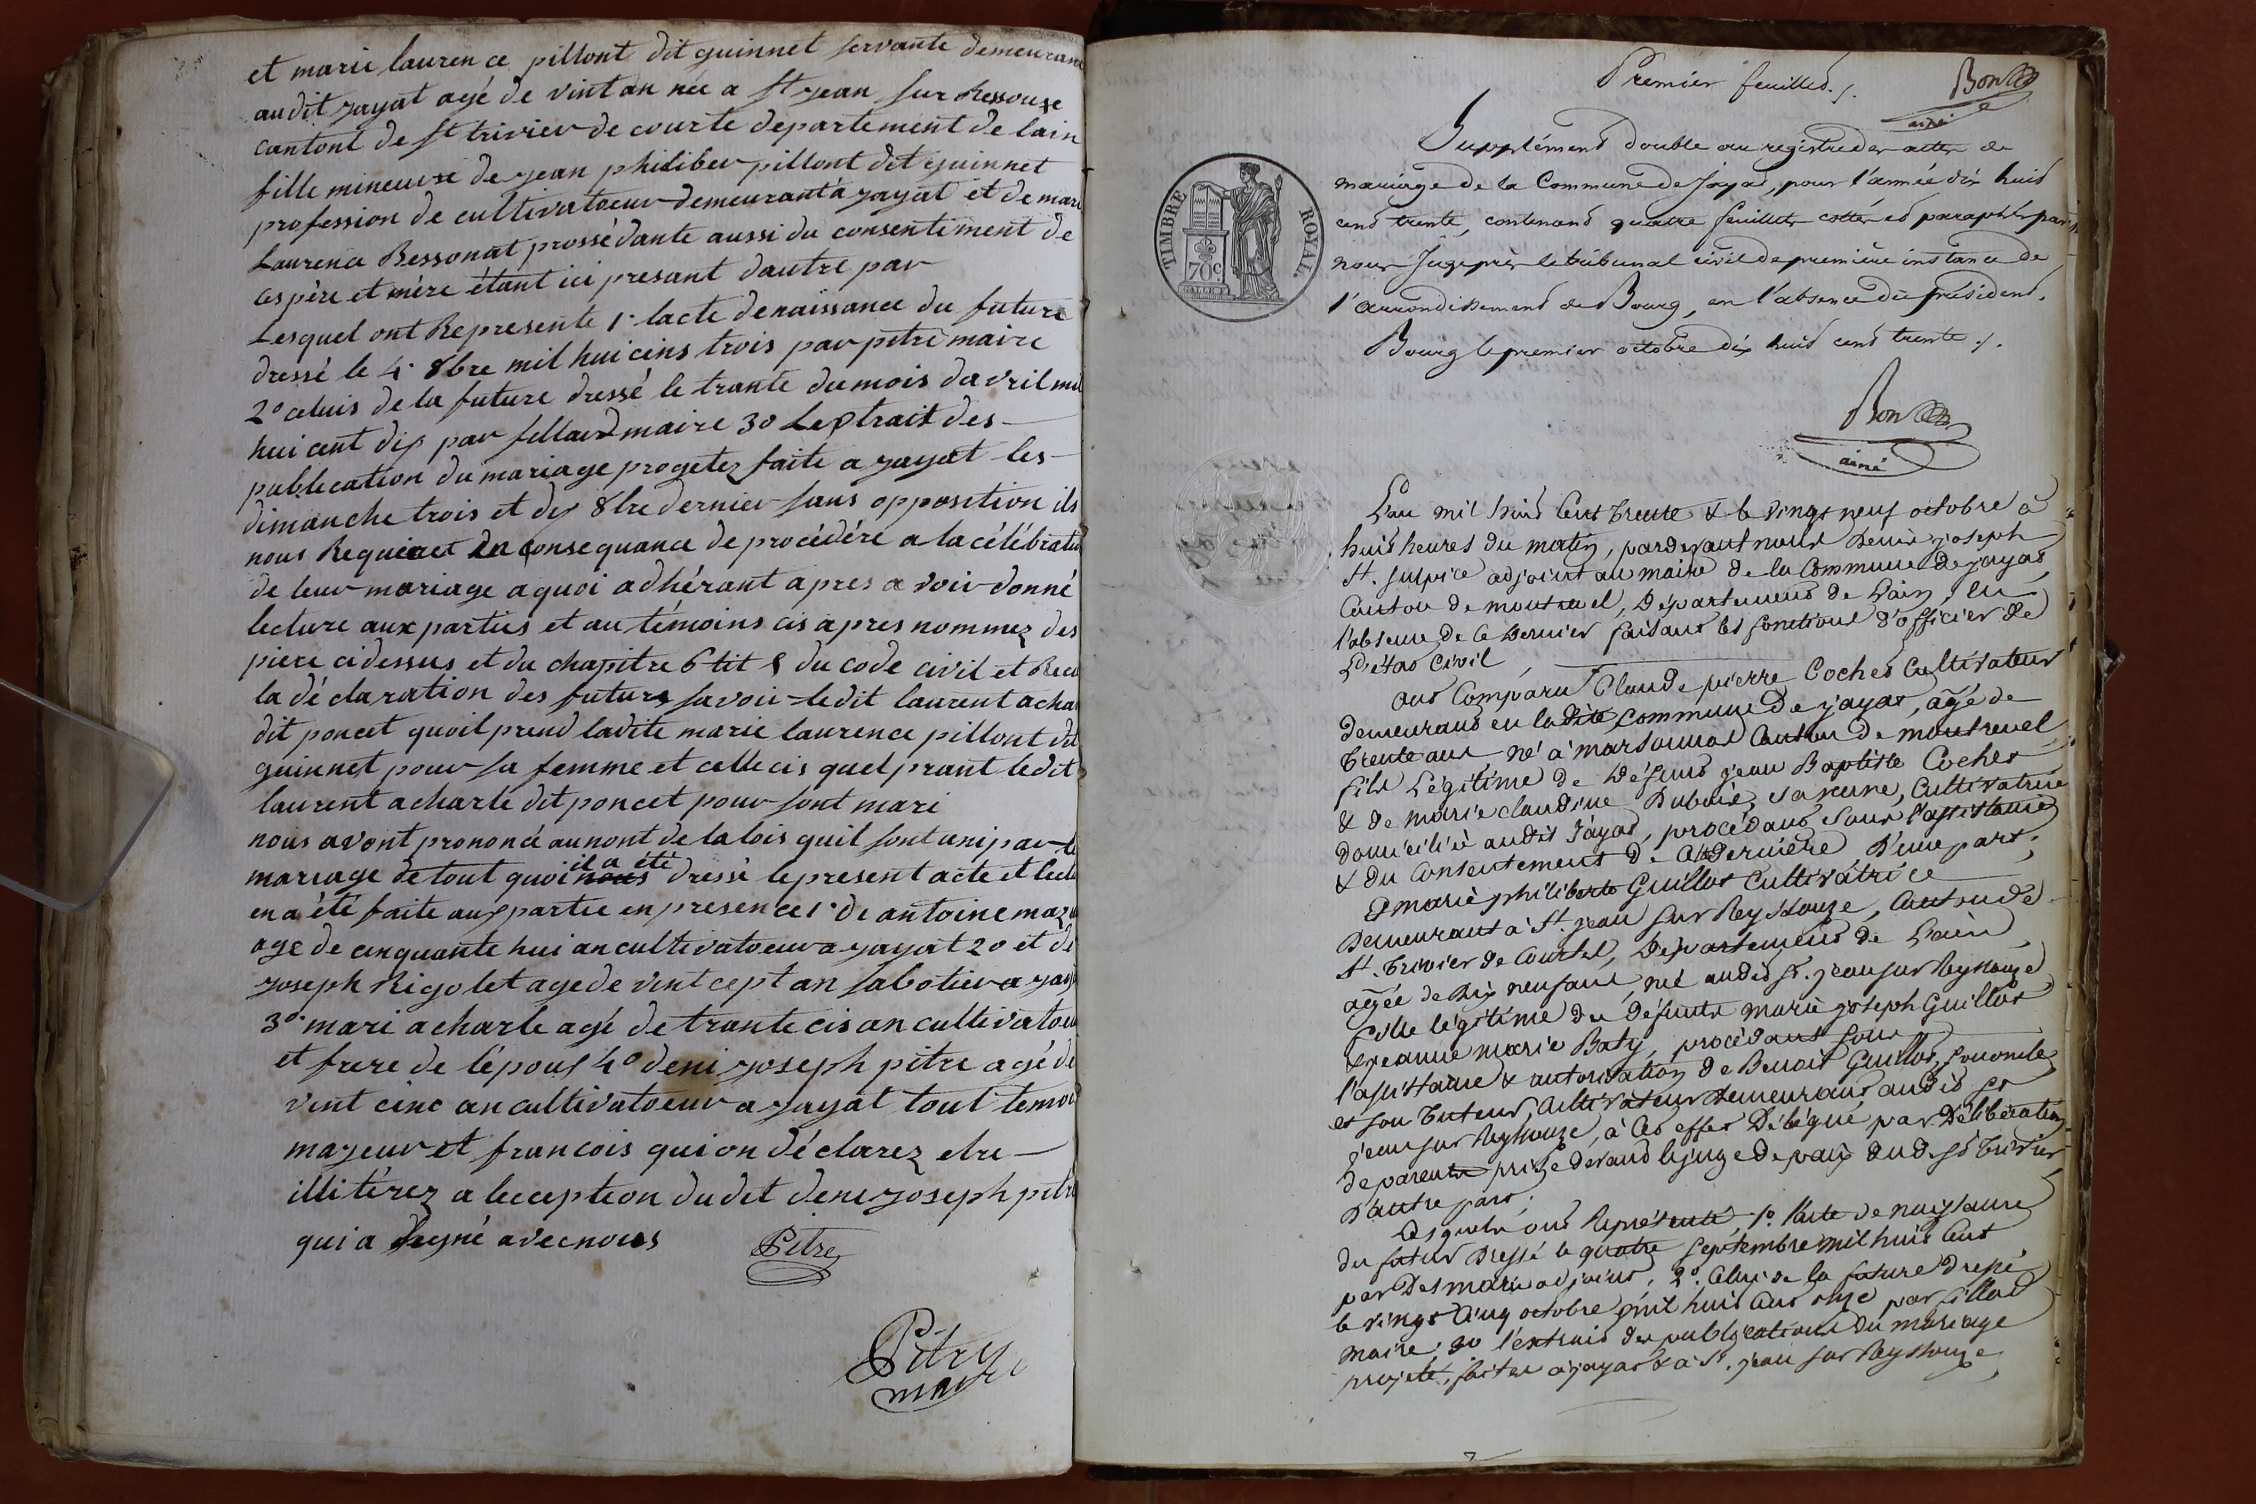 et marie lauren ce pillont dit guinnet servante demeurant
audit jayat agé de vint an née a St jean sur Ressouse
cantont de St trivier de courte departement de lain
fille mineure de jean philiber pillont dit guinnet
proféssion de cultivatoeur demeurant a jayat et de mari
Laurence Bessonat prossédante aussi du consentiment de
ces père et mère étant ici presant dautre par
Lesquel ont Represente 1° lacte de naissance du future
dressé le 4. 8bre mil hui cins trois par pitre maire
2° celuis de la future dressé le trante du mois davril mil
hui cent dix par fillard maire 3o Lextrait des
publication du mariage progetez faite a jayat les
dimanche trois et dix 8bre dernier sans opposition ils
nous Requieret En consequance de procédére a la célébration
de leur mariage a quoi adhérant apres a voir donné
lecture aux parties et au témoins cis apres nommez des
piece cidessus et du chapitre 6 tit 5 du code civil et Recu
la dé claration des futurs savoir ledit laurent acha
dit poncet quoil prend ladite marie laurence pillont dit
guinnet pour sa femme et celle cis quel prant ledit
laurent acharle dit poncet pour sont mari
nous avont prononcé au nont de la lois quil sont uni par le
il a été
mariage de tout quoi nous dressé le present acte et lectu
en a été faite aux partie en presence 1° de antoine maz
age de cinquante hui an cultivatoeur a jayat 2o et de
joseph Rigolet age de vint cept an sabotier a jay
3° mari acharle agé de trante cis an cultivatoeu
et frere de lépoux 4o deni joseph pitre agé de
vint cinc an cultivatoeur a jayat tout temoi
majeur et francois qui on déclarez etre
illitérez a lecception dudit deni joseph pitre
qui a signé avec nous Pitre
Pitre
maire
Premier feuillet ./.
Bon
ainé
TIMBRE ROYAL
70c
Supplément double au registre des actes de
mariage de la Commune de Jayat, pour l'année dix huit
cent trente, contenant quatre feuillets cottés et paraphés par
nous Juge près le tribunal civil de première instance de
l'arrondissement de Bourg, en l'absence du président.
Bourg le premier octobre dix huit cent trente ./.
Bon
ainé
L'an mil huit Cent trente & le vingt neuf octobre à
huit heures du matin, pardevant nous Denis joseph
St. sulpice adjoint au maire de la Commune de jayat,
Canton de montrevel, Département de L'ain, en
l'absence de ce Dernier faisant les fonctions d'officier de
L'etat Civil
ont Comparu Claude pierre Cochet Cultivateur
demeurant en la dite Commune de jayat, agé de
trente ans, né à marsonnas Canton de montrevel
fils Légitime de Défunt jean Baptiste Cochet
& de marie claudine Dubois, sa veuve, Cultivatrice
domiciliée audit Jayat, procédant sous l'assistance
& du Consentement de cette Dernière D'une part,
Et marie philiberte Guillot Cultivatrice
Demeurant à St. jean sur Reyssouze, Canton de
St. Trivier de Courtes, Département de L'ain
agée de Dix neuf ans née audit St. jean sur Reyssouze
fille légitime de Défunts marie joseph Guillot
& jeanne marie Baty, procédant sous
l'assistance & autorisation de Benoit Guillot, son oncle
et son tuteur, Cultivateur Demeurant audit St
jean sur Reyssouze, à Cet effet Délégué par Délibération
de parents prise devant le juge de paix dud. St Trivier
D'autre part.
Lesquels ont Représenté, 1o. l'acte de naissance
du futur Dressé le quatre septembre mil huit Cent
par Desmaris adjoint, 2°. Celui de la future Dressé
le vingt Cinq octobre mil huit Cent onze par fillod
maire, 3o l'extrait des publications du mariage
projeté, faites à jayat & à St. jean sur Reyssouze